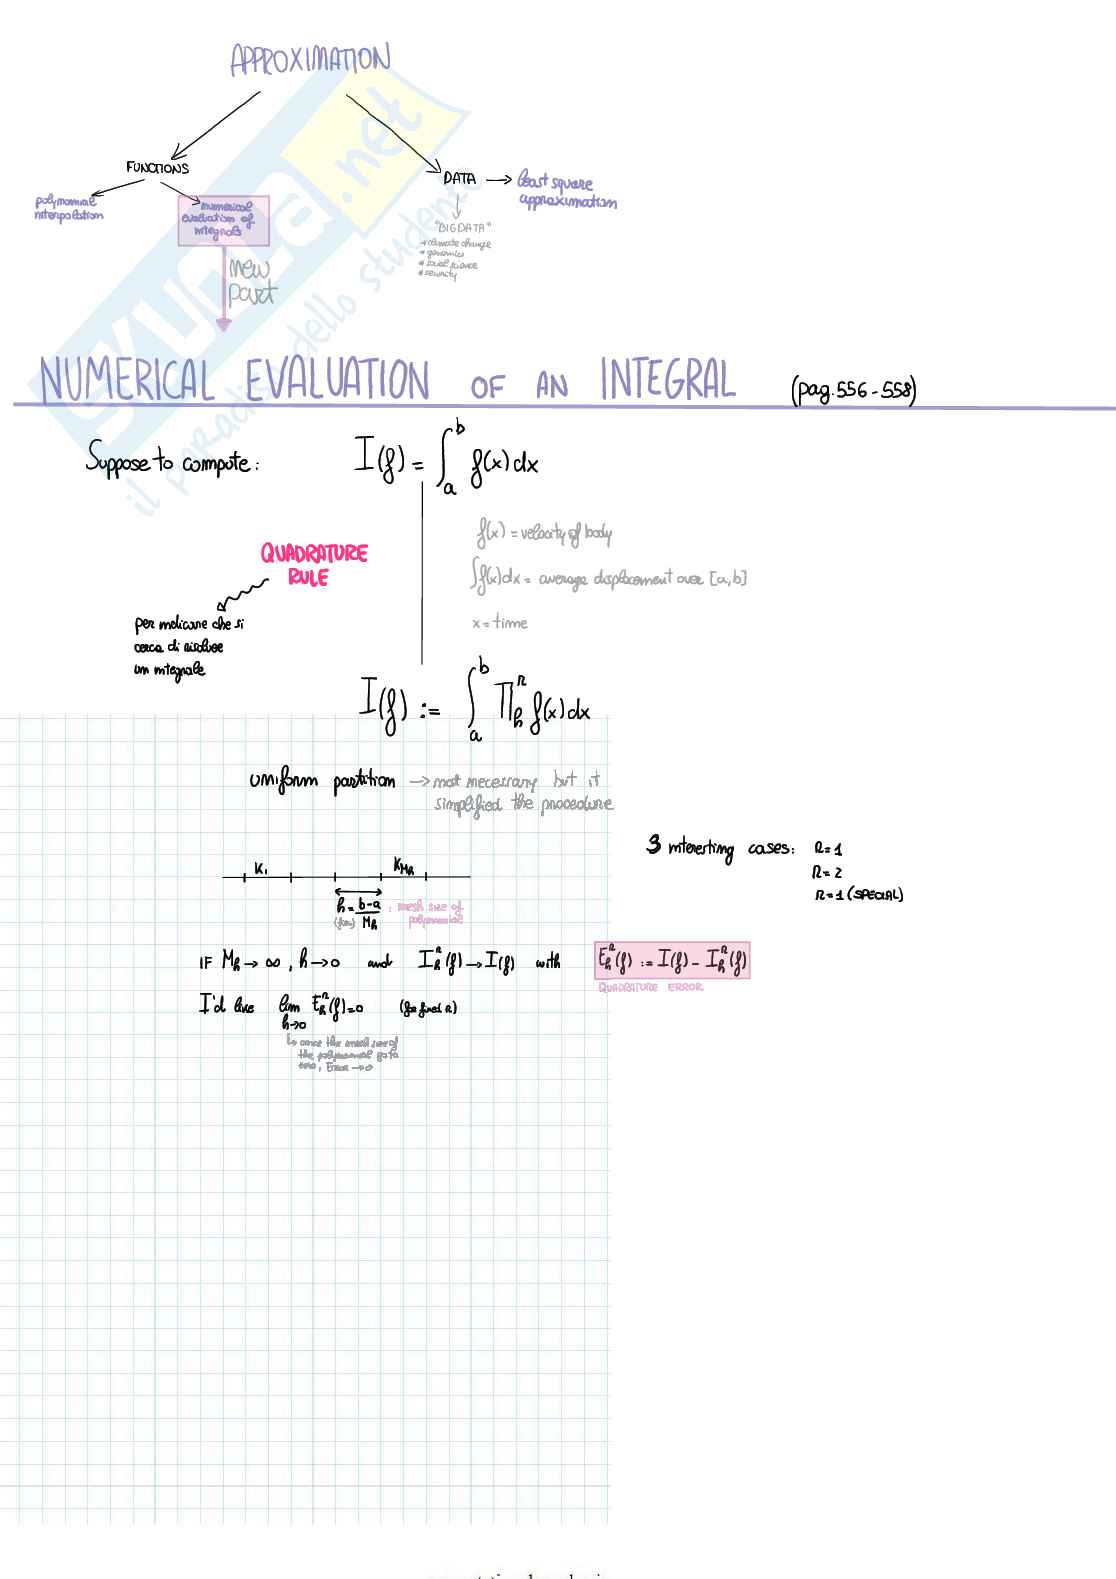 APPROXIMATION
FUNCTIONS
polynomial
interpolation
numerical
evaluation of
integrals
new
part
DATA → least square
approximation
"BIG DATA"
• climate change
• genomics
• social science
• security
SKUOLA.net
il paradiso dello studente
NUMERICAL EVALUATION OF AN INTEGRAL (pag. 556-558)
Suppose to compute: I(f) = ∫_a^b f(x)dx
f(x) = velocity of body
∫f(x)dx = average displacement over [a,b]
x = time
QUADRATURE
RULE
per indicare che si
cerca di risolvere
un integrale
I(f) := ∫_a^b Π_h^r f(x)dx
uniform partition → not necessary but it
simplified the procedure
3 interesting cases: r=1
r=2
r=1 (SPECIAL)
K₁ K_{M_h}
h = (b-a)/M_h , mesh size of
polynomial
IF M_h → ∞, h → 0 and I_h^r(f) → I(f) with E_h^r(f) := I(f) - I_h^r(f)
QUADRATURE ERROR
I'd like lim_{h→0} E_h^r(f) = 0 (for fixed r)
↳ once the mesh size of
the polynomial go to
zero, Error → 0